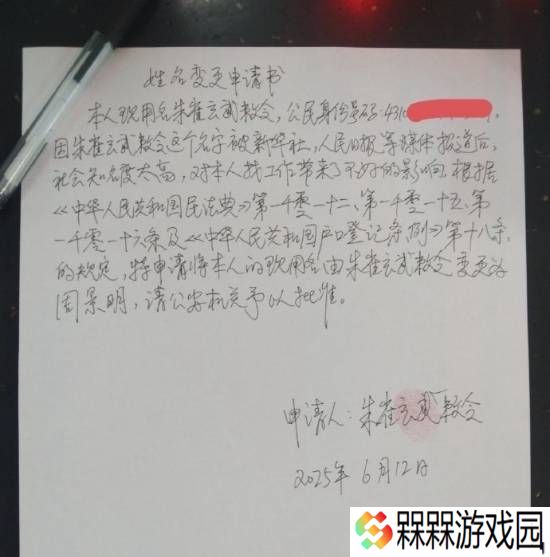 姓名变更申请书
本人现用名朱雀玄武敕令，公民身份号码：4310
因朱雀玄武敕令这个名字被新华社，人民日报等媒体报道后，
社会知名度太高，对本人找工作带来了不好的影响。根据
《中华人民共和国民法典》第一千零一十二、第一千零一十五、第
一千零一十六条及《中华人民共和国户口登记条例》第十八条，
的规定，特申请将本人的现用名由朱雀玄武敕令变更为
周景明，请公安机关予以批准。
申请人：朱雀玄武敕令
2025年 6月12日
槑槑游戏园